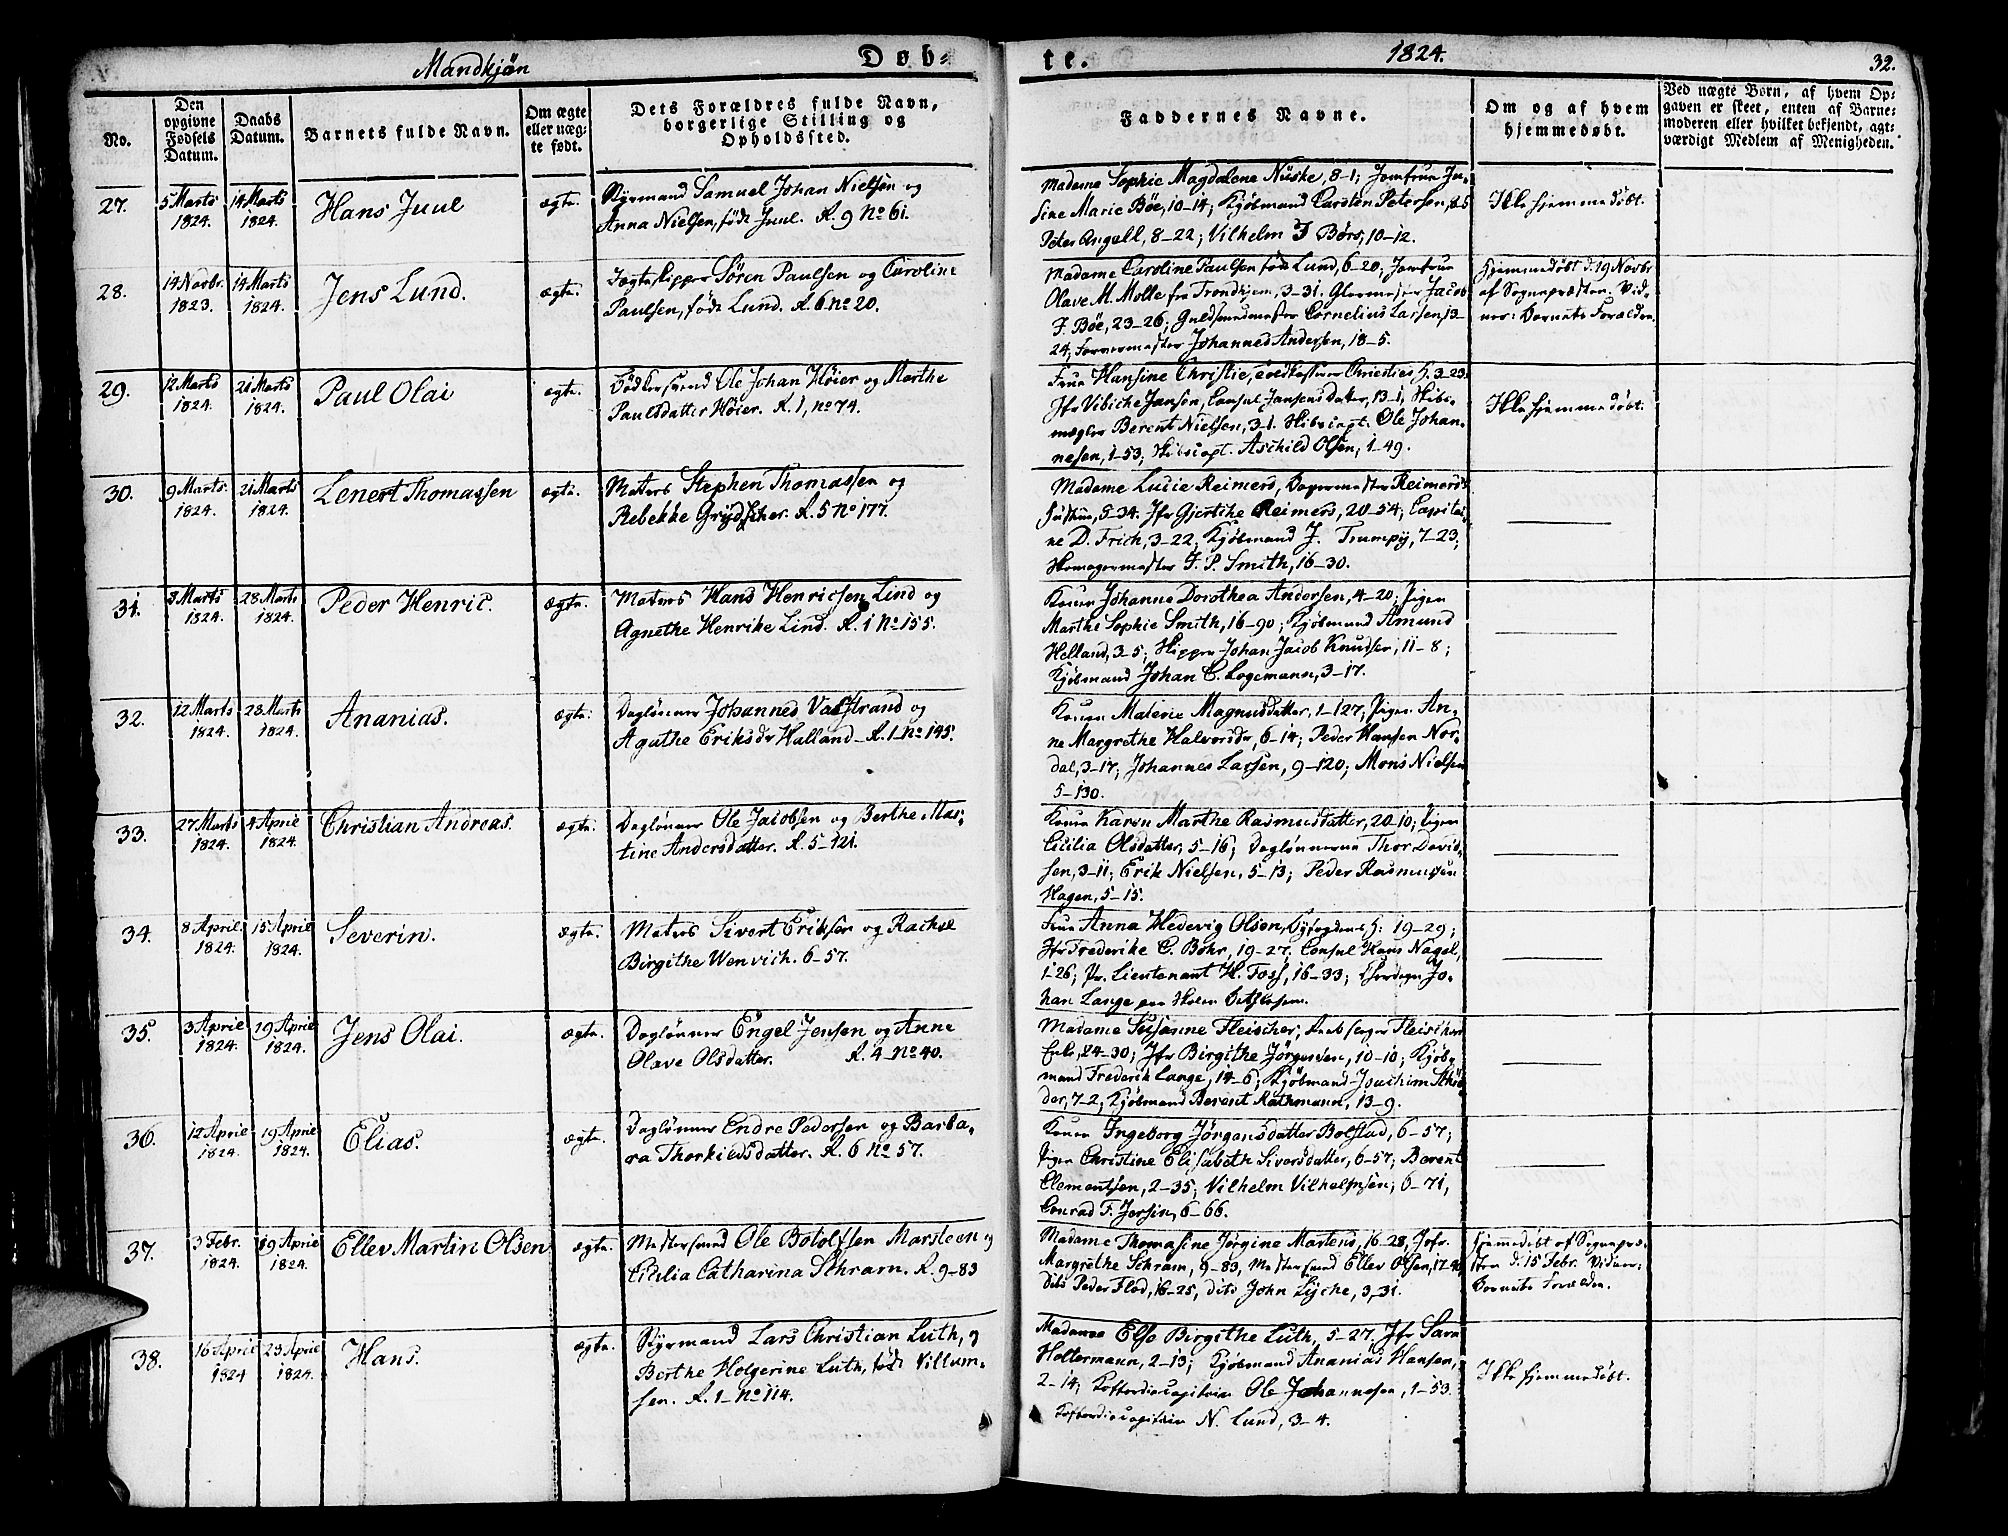 Mandkjøn
Døb-
te.
1824.
32.
No.
Den opgivne Fødsels Datum.
Daabs Datum.
Barnets fulde Navn.
Om ægte eller uæg-te født.
Dets Forældres fulde Navn, borgerlige Stilling og Opholdssted.
Faddernes Navne.
Om og af hvem hjemmedøbt.
Ved uægte Børn, af hvem Op-
gaven er skeet, enten af Barne-
moderen eller hvilket bekjendt, agt-
værdigt Medlem af Menigheden.
27.
5 Marts 1824.
14 Marts 1824.
Hans Juul
ægte.
Styrmand Samuel Johan Nielsen og
Anna Nielsen, født Juul. R. 9 No 61.
Madame Sophie Magdalene Nüske, 8-1; Jomfrue Jo-
sine Marie Böe, 10-14; Kjöbmand Carsten Petersen, 8-5
Peter Angell, 8-22; Vilhelm F Börs, 10-12.
Ikke hjemmedöbt.
28.
14 Novbr. 1823.
14 Marts 1824.
Jens Lund.
ægte.
Jagteskipper Sören Paulsen og Caroline
Paulsen, født Lund. R. 6 no 20.
Madame Caroline Paulsen født Lund, 6-20; Jomfrue
Olave M. Molle fra Trondhjem, 3-31. Glarmester Jacob
F. Böe, 23-26; Guldsmedmester Cornelius Larsen, 13-
24; Farvermester Johannes Andersen, 18-5.
Hjemmedöbt d. 19 Novbr
af Sognepræsten. Vid-
ner: Barnets Forældre.
29.
12 Marts 1824.
21 Marts 1824.
Paul Olai
ægte.
Bödkersvend Ole Johan Höier og Marthe
Paulsdatter Höier. R. 1, no 74.
Frue Hansine Christie, Christies H. 3-23.
Jfr Vibiche Jansen, Consul Jansens Datter, 13-1, Skibs-
mægler Berent Nielsen, 3-1. Skibscapt. Ole Johan-
nesen, 1-53; Skibscapt. Aschild Olsen, 1-49.
Ikke hjemmedöbt.
30.
9 Marts. 1824.
21 Marts 1824.
Lenert Thomassen
ægte.
Matros Stephen Thomassen og
Rebekke Grydscher. R. 5 No 177.
Madame Lucie Reimers, Bagermester Reimers's
Hustrue, 5-34. Jfr Gjertike Reimers, 20-54; Capitai-
ne D. Frich, 3-22; Kjöbmand J. Trumpy, 7-23;
Skomagermester J. P. Smith, 16-30.
31.
8 Marts 1824.
28 Marts 1824.
Peder Henric.
ægte.
Matros Hans Henricsen Lind og
Agnethe Henrike Lind. R. 1 No 155.
Konen Johanne Dorothea Andersen, 4-20; Pigen
Marthe Sophie Smith, 16-90; Kjöbmand Amund
Helland, 3-5; Skipper Johan Jacob Knudsen, 11-8;
Kjöbmand Johan C. Logemann, 3-17.
32.
12 Marts 1824.
28 Marts 1824.
Ananias.
ægte.
Daglönner Johannes Valstrand og
Agathe Eriksdr Halland. R. 1 No 145.
Konen Malene Magnusdatter, 1-127; Pigen An-
ne Margrethe Halvorsdr, 6-14; Peder Hansen Nor-
dal, 3-17; Johannes Larsen, 9-120; Mons Nielsen
5-130.
33.
27 Marts 1824.
4 April 1824.
Christian Andreas.
ægte.
Daglönner Ole Jacobsen og Berthe Mar-
tine Andersdatter. R. 5-121.
Konen Karen Marthe Rasmusdatter, 20-10; Pigen
Cicilia Olsdatter, 5-16; Daglönnerne Thor David-
sen, 3-11; Erik Nielsen, 5-13; Peder Rasmussen
Hagen, 5-15.
34.
8 April 1824.
15 April 1824.
Severin.
ægte.
Matros Sivert Eriksen og Rachel
Birgithe Wenvich. 6-57.
Frue Anna Hedevig Olsen, Byfogdens H: 19-29;
Jfr Frederike C. Böhr, 19-27. Consul Hans Nagel,
1-26; Pr. Lieutenant H. Foss, 16-33; Jo-
han Lange
35.
3 April 1824.
19 April 1824.
Jens Olai.
ægte.
Daglönner Engel Jensen og Anne
Olave Olsdatter. R. 4 No 40.
Madame Susanne Fleischer, Fleischers
Enke, 24-30; Jfr Birgithe Jörgensen, 10-10; Kjöb-
mand Frederik Lange, 14-6; Kjöbmand Joachim Schrö-
der, 7-2; Kjöbmand Berent Rathmann, 13-9.
36.
12 April 1824.
19 April 1824.
Elias.
ægte.
Daglönner Endre Pedersen og Barba-
ra Thorkildsdatter. R. 6 No 57.
Konen Ingeborg Jörgensdatter Bolstad, 6-57;
Pigen Christine Elisabeth Siversdatter, 6-57; Berent
Clementsen, 2-35; Vilhelm Vilhelmsen, 6-71,
Conrad F. Jersin, 6-66.
37.
3 Febr. 1824.
19 April 1824.
Ellev Martin Olsen
ægte.
Mestersvend Ole Botolfsen Marsteen og
Cicilia Catharina Schram. R. 9-83
Madame Thomasine Jörgine Martens, 16-28, Jfr.
Margrethe Schram, 9-83, Mestersvend Ellev Olsen, 17-
Dito Peder Flod, 16-25, dito John Lyche, 3-31.
Hjemmedöbt af Sognepræ-
sten d. 15 Febr. Vidner:
Barnets Forældre.
38.
16 April 1824
23 April 1824.
Hans.
ægte.
Styrmand Lars Christian Luth, og
Berthe Holgerine Luth, født Villum-
sen. R. 1 No 114.
Madame Else Birgithe Luth, 5-27. Jfr Sara
Holtermann, 2-13; Kjöbmand Ananias Hansen,
2-14; Koffardiecapitain Ole Johannesen, 1-53.
Koffardiecapitain N. Lund, 3-4.
Ikke hjemmedöbt.